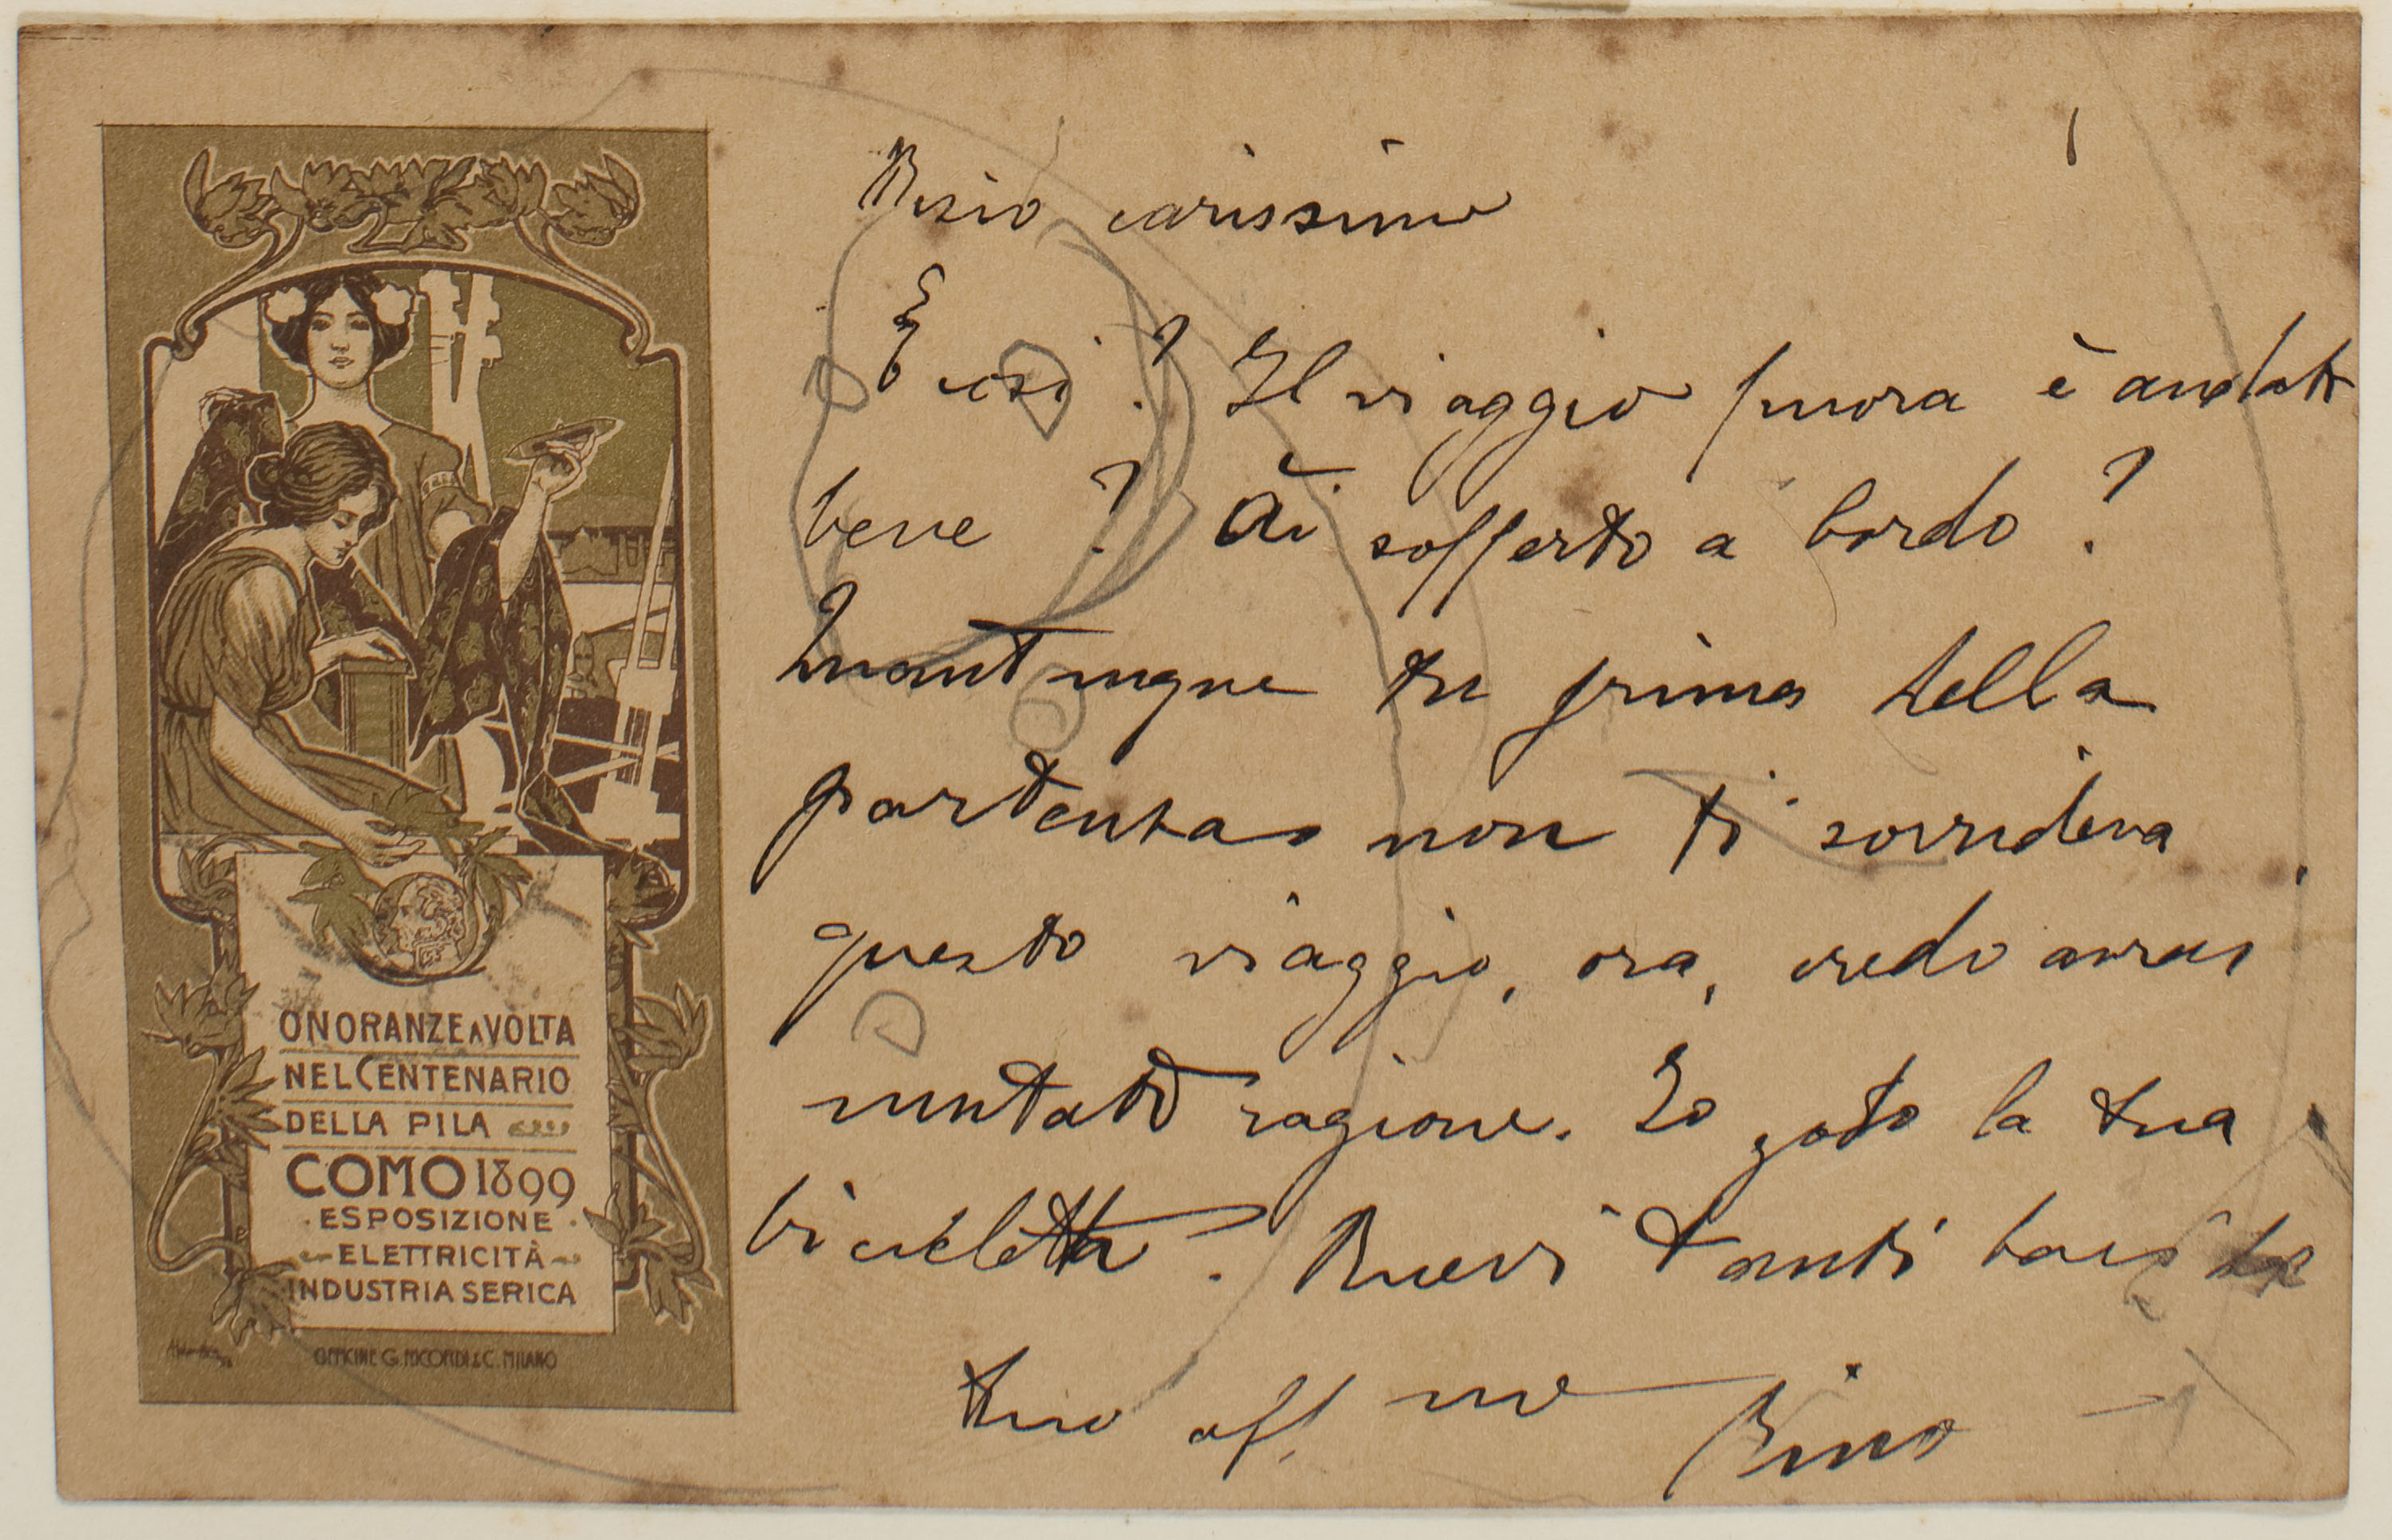 ONORANZE A VOLTA
NEL CENTENARIO
DELLA PILA
COMO 1899
ESPOSIZIONE
ELETTRICITÀ
INDUSTRIA SERICA
OFFICINE G. RICORDI & C. MILANO
carissimo
E così? Il viaggio finora è andato
bene? Ài sofferto a bordo?
Quantunque tu prima della
partenza non ti sorrideva
questo viaggio, ora, credo avrai
mutato ragione. Io godo la tua
bicicletta? Ricevi tanti baci dal
tuo aff.mo Pino